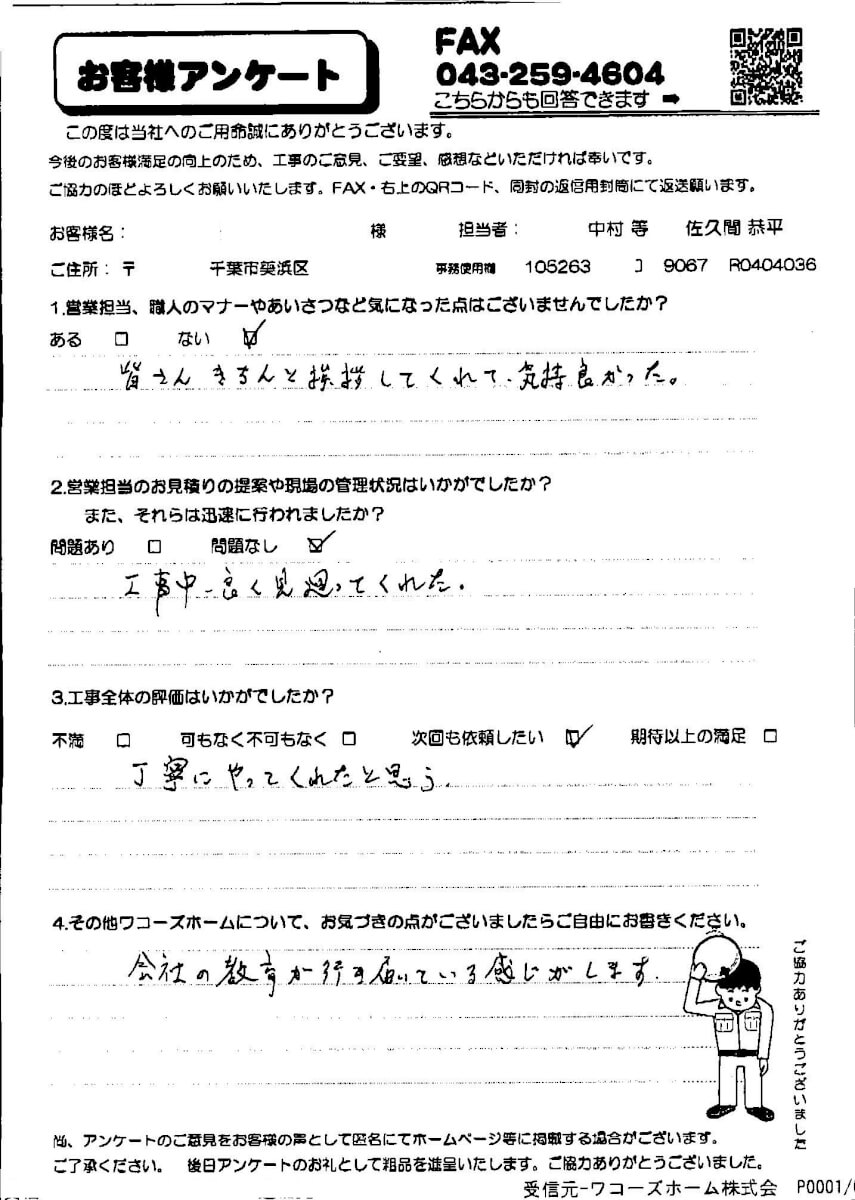 お客様アンケート
FAX
043-259-4604
こちらからも回答できます ➡
この度は当社へのご用命誠にありがとうございます。
今後のお客様満足の向上のため、工事のご意見、ご要望、感想などいただければ幸いです。
ご協力のほどよろしくお願いいたします。FAX・右上のQRコード、同封の返信用封筒にて返送願います。
お客様名： 様 担当者： 中村 等 佐久間 恭平
ご住所：〒 千葉市美浜区 事務使用欄 105263 コ 9067 R0404036
1.営業担当、職人のマナーやあいさつなど気になった点はございませんでしたか？
ある □ ない ☑
皆さんきちんと挨拶してくれて、気持良かった。
2.営業担当のお見積りの提案や現場の管理状況はいかがでしたか？
また、それらは迅速に行われましたか？
問題あり □ 問題なし ☑
工事中良く見廻ってくれた。
3.工事全体の評価はいかがでしたか？
不満 □ 可もなく不可もなく □ 次回も依頼したい ☑ 期待以上の満足 □
丁寧にやってくれたと思う。
4.その他ワコーズホームについて、お気づきの点がございましたらご自由にお書きください。
会社の教育が行き届いている感じがします。
ご協力ありがとうございました
尚、アンケートのご意見をお客様の声として匿名にてホームページ等に掲載する場合がございます。
ご了承ください。 後日アンケートのお礼として粗品を進呈いたします。ご協力ありがとうございました。
受信元-ワコーズホーム株式会 P0001/